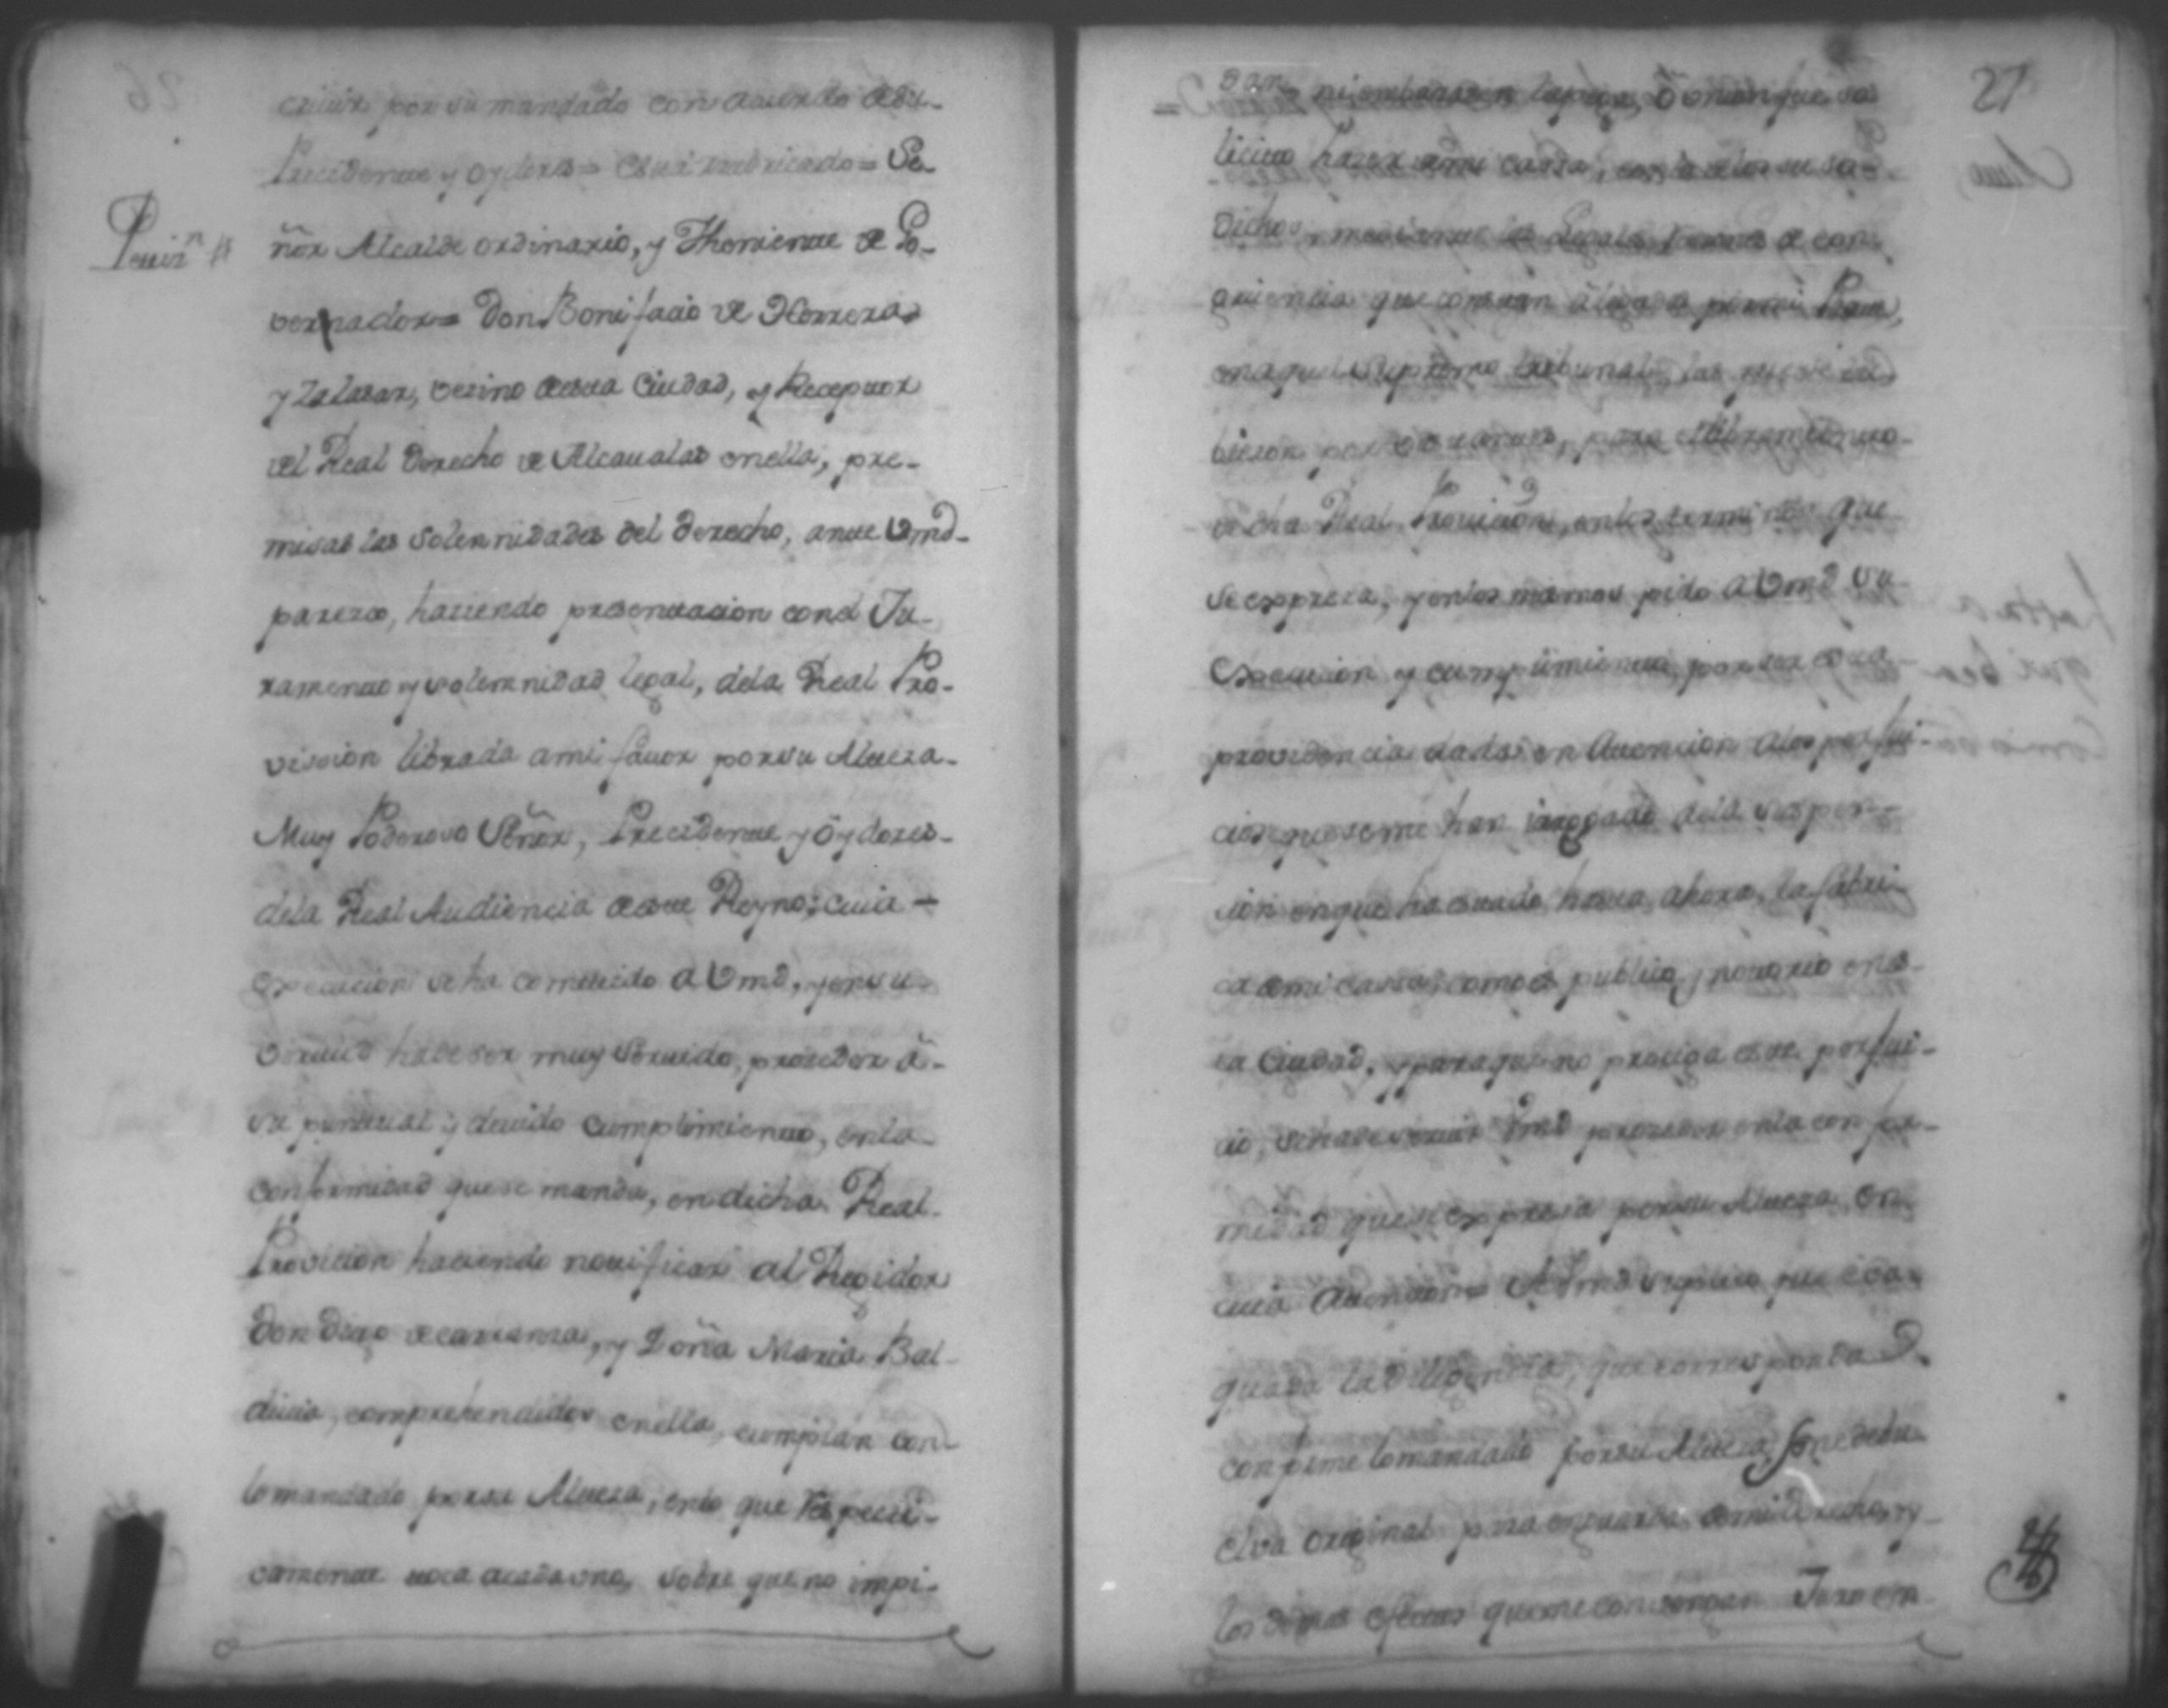 crivir por su mandado con acuerdo de su
Precidente y oydores = Está rubricado = Se-
Petiz.n
ñor Alcalde ordinario, y Theniente de Go-
vernador = Don Bonifacio de Herrera
y Zalasar, vezino de esta Ciudad, y Receptor
del Real Derecho de Alcaualas en ella, pre-
misas las solemnidades del derecho, ante Vmd-
parezco, haziendo presentacion con el Ju-
ramento y solemnidad legal, de la Real Pro-
vission librada a mi fauor por su Alteza-
Muy Poderoso Señor, Precidente y oydores-
de la Real Audiencia de este Reyno; cuia-
execucion se ha cometido a Vmd, y en su
virtud ha de ser muy seruido, proceder á-
su puntual y deuido cumplimiento, en la-
conformidad que se manda, en dicha Real-
Provicion haciendo notificar al Regidor
Don Diego de carranza, y Doña Maria Bal-
dicia, comprehendidos en ella, cumplan con-
lo mandado por su Alteza, en lo que respecti-
camente toca a cada uno, sobre que no impi-
27
dan, ni embarasen la
licito hazer de mi cassa, los suso-
dichos, mediante de con-
que constan por mi Parte,
en aquel Supremo tribunal, las
para el libramiento
dicha Real Provicion, en los terminos que
se expreza, y en los mismos pido a Vmd su
Execucion y cumplimiento, por ser
providencia dada en atencion a los perjui-
cios que se me han irrogado de la suspen-
cion en que ha estado hasta ahora, la fabri-
ca de mi cassa, como es publico y notorio en es-
ta Ciudad, y para que no prosiga este perjui-
cio, se ha de seruir Vmd proceder en la confor-
midad que se expresa por su Alteza, en
cuia atencion = A Vmd suplico que eva-
quada la diligencia, que corresponda
conforme lo mandado por su Alteza, se me debu-
elva original para en guarda de mi derecho, y
los demas efectos que me convengan Juro en